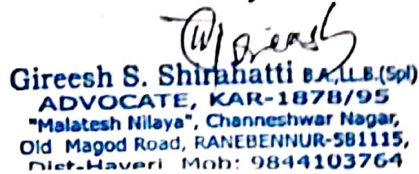 Gireesh S. Shirahatti B.A,LL.B.(Spl)
ADVOCATE, KAR-1878/95
"Malatesh Nilaya", Channeshwar Nagar,
Old Magod Road, RANEBENNUR-581115,
Dist-Haveri Mob: 9844103764